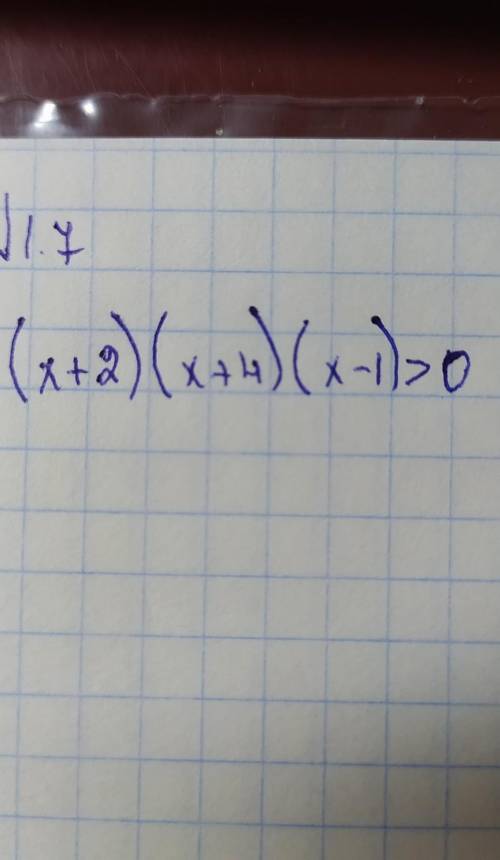 1.7
(x+2)(x+4)(x-1)>0